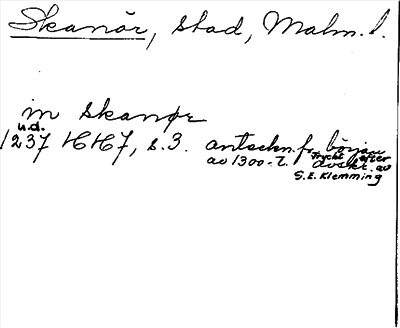 Skanör, stad, Malm. l.
in skanør
u.d.
1237 HH7, s. 3. anteckn. fr. början
av 1300-t. Tryckt efter
avskr. av
G.E. Klemming